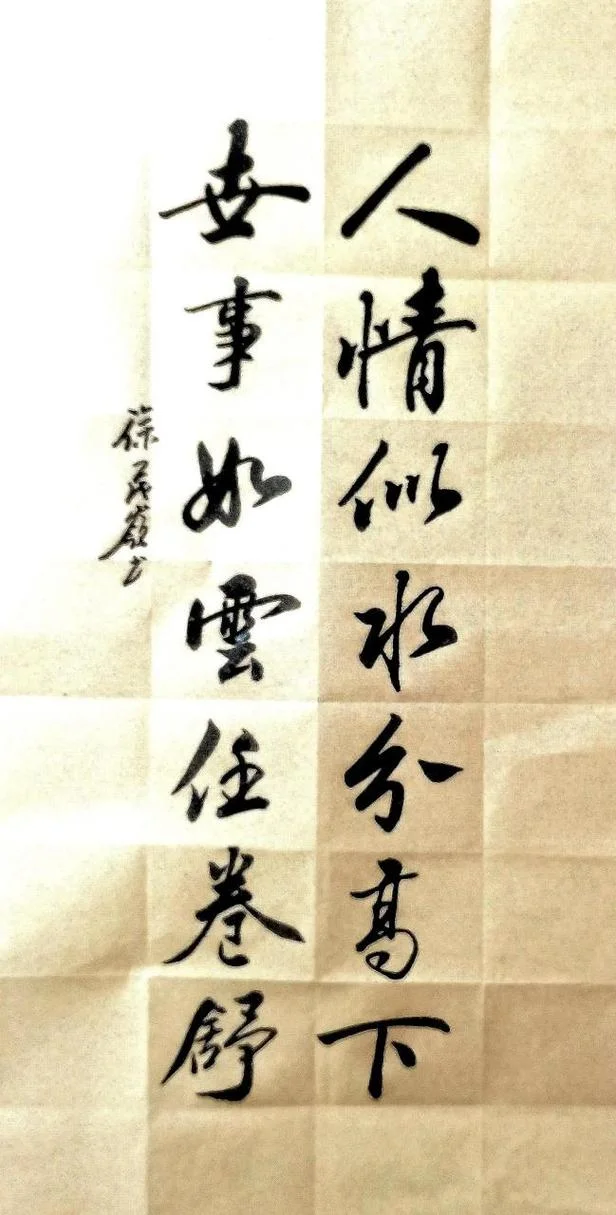 人情似水分高下
世事如雲任卷舒